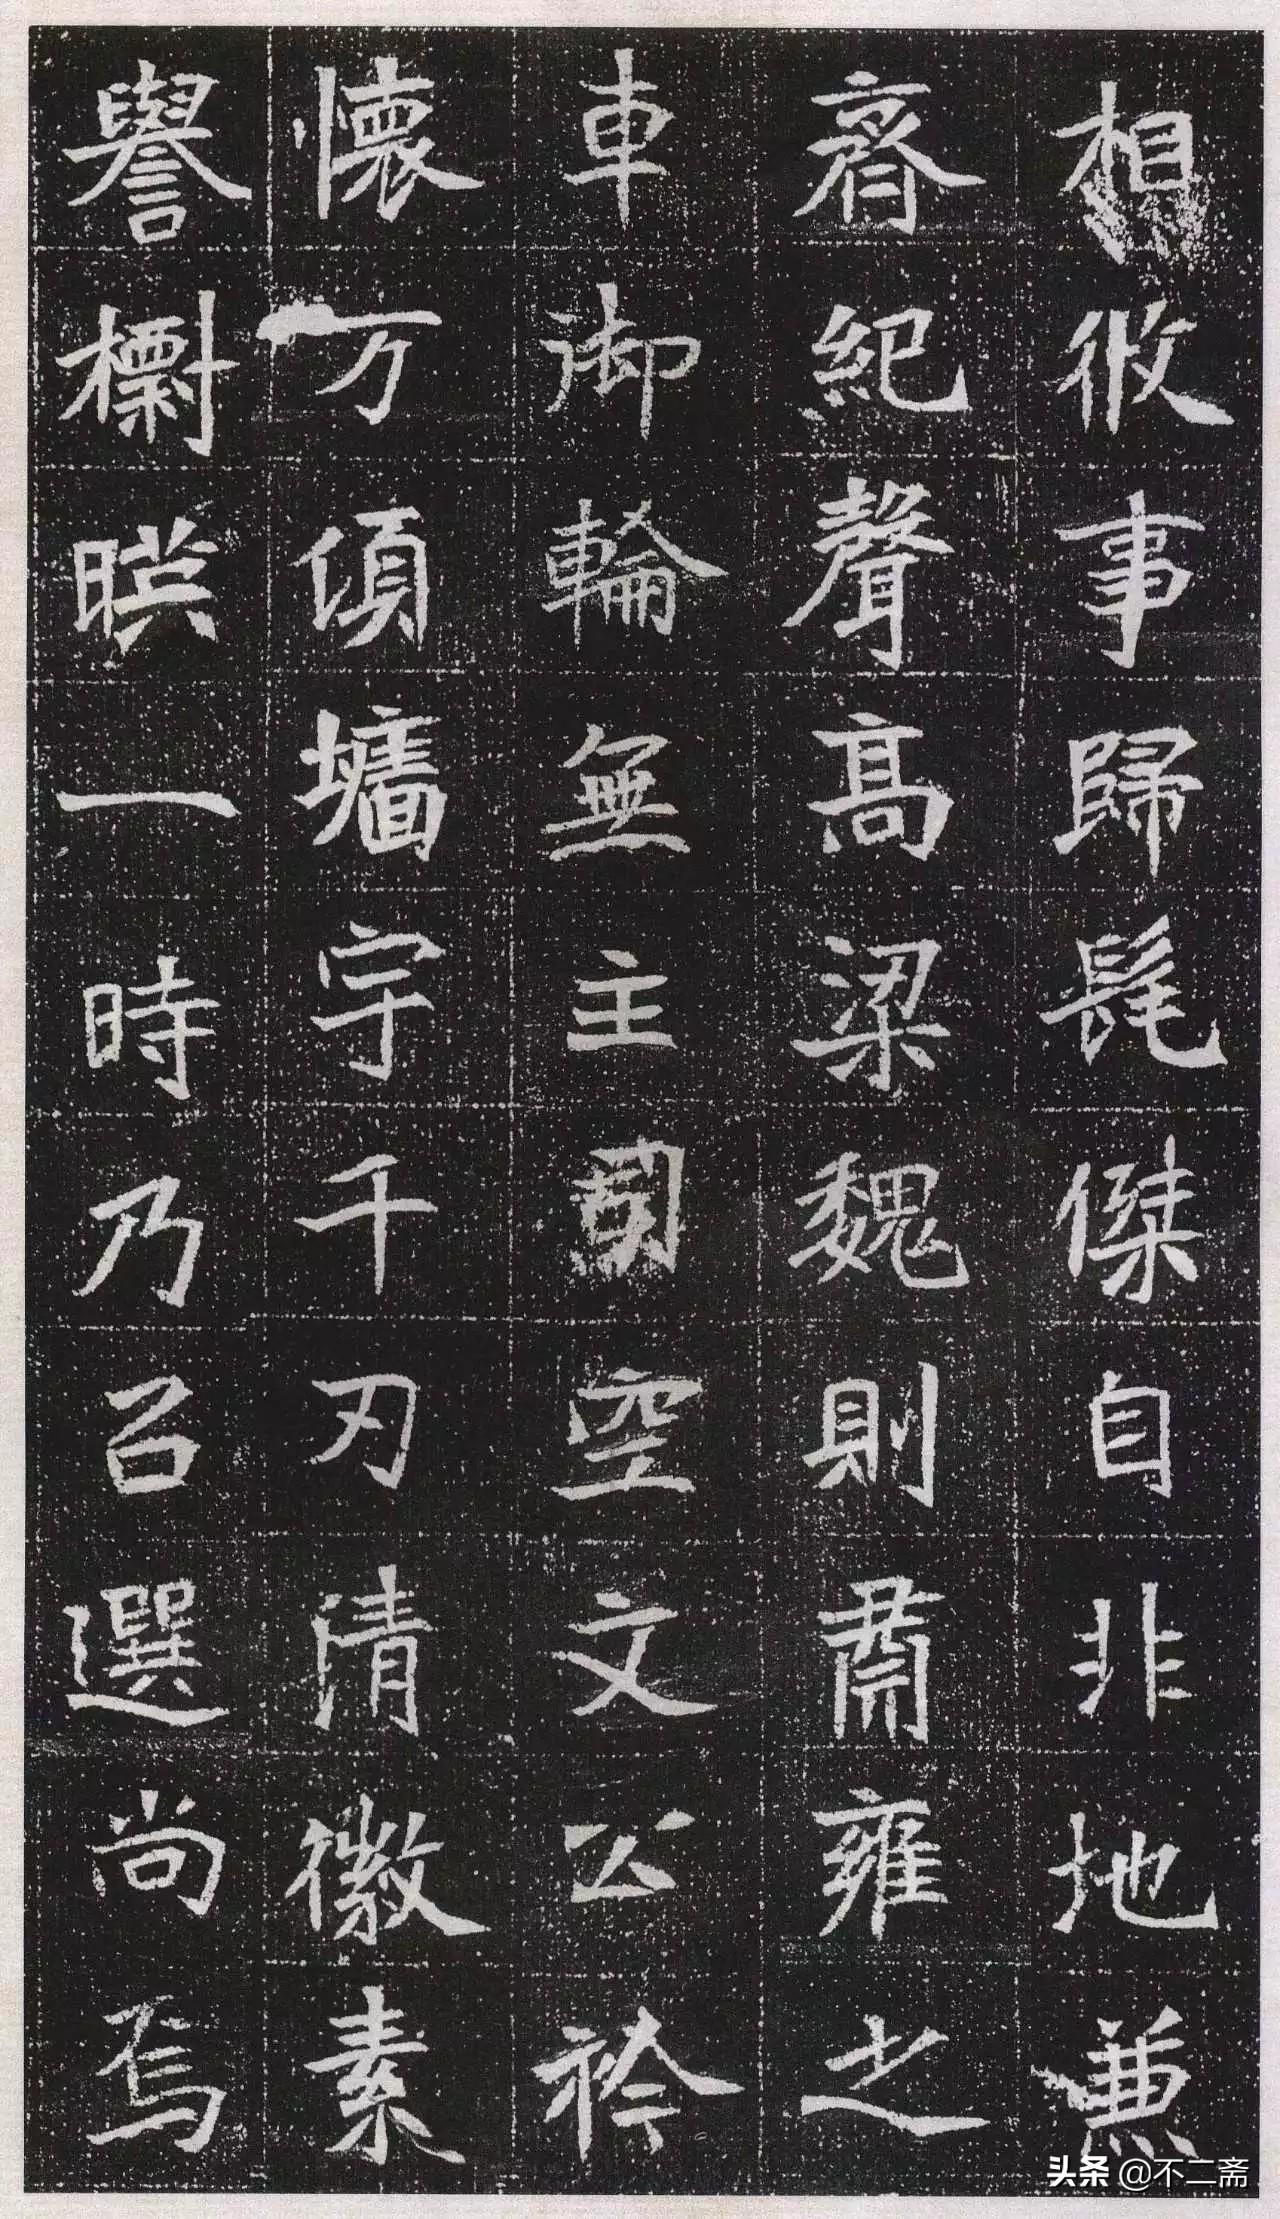 相攸事歸髦傑自非地兼
齊紀聲高梁魏則肅雍之
車御輪無主空文公衿
懷万頃墻宇千刃清徽素
譽檦暎一時乃召選尚焉
头条 @不二斋